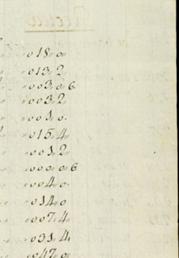 018,0
013,2
003,0,6
003,2
001,0
015,4
001,2
000,0,6
004,0
014,0
007,4
031,4
047,0